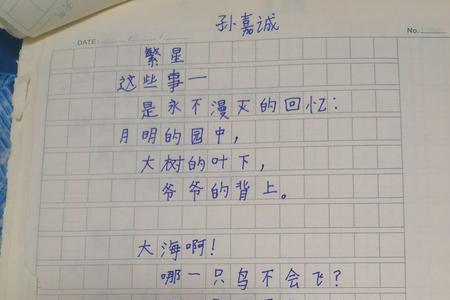 孙嘉诚
DATE: / /
No.
繁星
这些事一
是永不漫灭的回忆:
月明的园中,
大树的叶下,
爷爷的背上。
大海啊!
哪一只鸟不会飞?